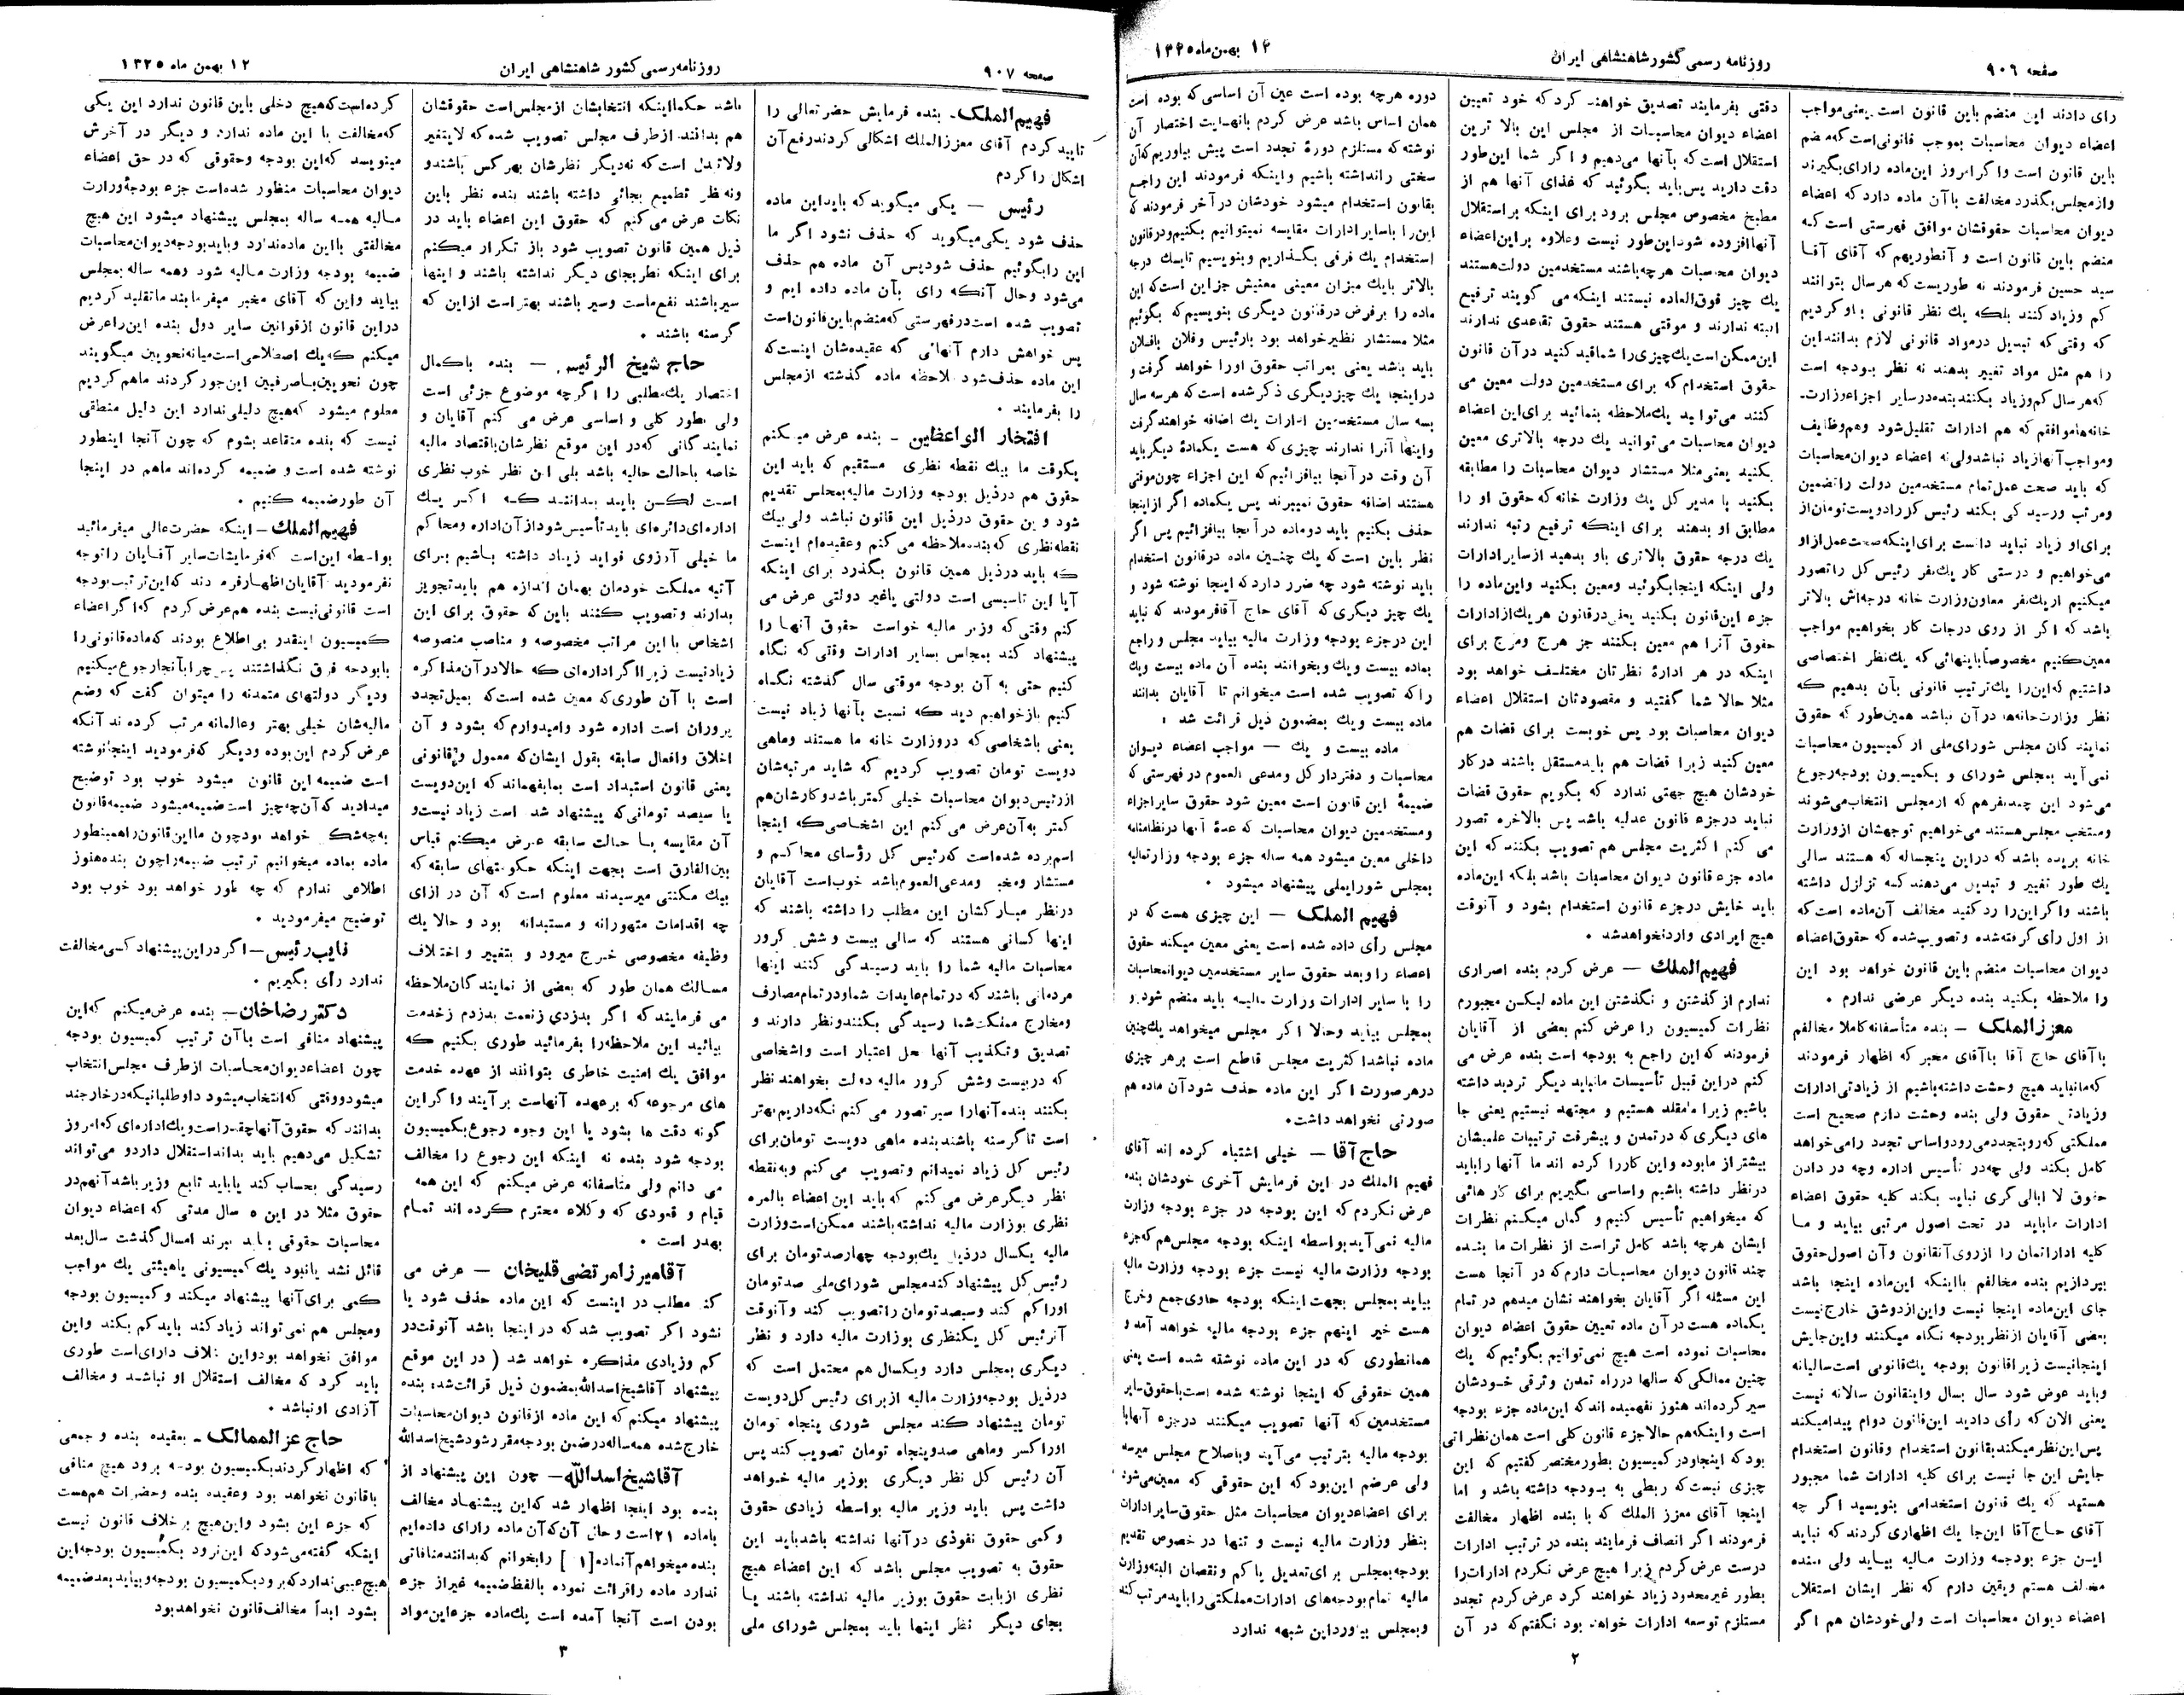 صفحه ۹۰۶
روزنامه رسمی کشور شاهنشاهی ایران
۱۲ بهمن ماه ۱۳۲۵
رای دادند این منضم باین قانون است یعنی مواجب
اعضاء دیوان محاسبات بموجب قانونی است که منضم
باین قانون است واگر امروز این ماده رارای بگیرند
واز مجلس بگذرد مخالفت باآن ماده دارد که اعضاء
دیوان محاسبات حقوقشان موافق فهرستی است که
منضم باین قانون است و آنطوریهم که آقای آقا
سید حسین فرمودند نه طوریست که هر سال بتوانند
کم وزیاد کنند بلکه یك نظر قانونی باو کردیم
که وقتی که تبدیل درمواد قانونی لازم بدانند این
را هم مثل مواد تغییر بدهند نه نظر ببودجه است
که هر سال کم وزیاد بکنند بنده در سایر اجزاء وزارت
خانه ها موافقم که هم ادارات تقلیل شود وهم وظایف
ومواجب آنها زیاد نباشد ولی نه اعضاء دیوان محاسبات
که باید صحت عمل تمام مستخدمین دولت را تضمین
برای او زیاد نباید دانست برای اینکه صحت عمل از او
می خواهیم و درستی کار یك نفر رئیس کل را تصور
میکنیم از یك نفر معاون وزارت خانه درجه اش بالاتر
باشد که اگر از روی درجات کار بخواهیم مواجب
معین کنیم مخصوصاً باینهائی که یك نظر اختصاصی
داشتیم که این را یك ترتیب قانونی بآن بدهیم که
نظر وزارت خانه ها در آن نباشد همین طور که حقوق
نمایند کان مجلس شورای ملی از کمیسیون محاسبات
نمی آید بمجلس شورای و بکمیسیون بودجه رجوع
می شود این چند نفر هم که از مجلس انتخاب می شوند
ومنتخب مجلس هستند می خواهیم توجهشان از وزارت
خانه بریده باشد که در این پنجساله که هستند سالی
یك طور تغییر و تبدیل می دهند که تزلزل داشته
باشند واگر این را رد کنید مخالف آن ماده است که
از اول رأی گرفته شده وتصویب شده که حقوق اعضاء
دیوان محاسبات منضم باین قانون خواهد بود این
را ملاحظه بکنید بنده دیگر عرضی ندارم .
معززالملك – بنده متأسفانه کاملا مخالفم
باآقای حاج آقا باآقای مخبر که اظهار فرمودند
که ما نباید هیچ وحشت داشته باشیم از زیادتی ادارات
وزیادتی حقوق ولی بنده وحشت دارم صحیح است
مملکتی که رو بتجدد می رود واساس تجدد را می خواهد
کامل بکند ولی چه در تأسیس اداره وچه در دادن
حقوق لا ابالی گری نباید بکند کلیه حقوق اعضاء
ادارات ما باید در تحت اصول مرتبی بیاید و ما
کلیه اداراتمان را از روی آنقانون وآن اصول حقوق
بپردازیم بنده مخالفم بااینکه این ماده اینجا باشد
جای این ماده اینجا نیست واین از دوشق خارج نیست
بعضی آقایان از نظر بودجه نگاه میکنند واین جایش
اینجا نیست زیرا قانون بودجه یك قانونی است سالیانه
وباید عوض شود سال بسال واینقانون سالانه نیست
یعنی الان که رأی دادید این قانون دوام پیدا میکند
پس این نظر میکند بقانون استخدام وقانون استخدام
جایش این جا نیست برای کلیه ادارات شما مجبور
هستید که یك قانون استخدامی بنویسید اگر چه
آقای حاج آقا این جا یك اظهاری کردند که نباید
این جزء بودجه وزارت مالیه بیاید ولی بنده
مخالف هستم ویقین دارم که نظر ایشان استقلال
اعضاء دیوان محاسبات است ولی خودشان هم اگر
دقتی بفرمایند تصدیق خواهند کرد که خود تعیین
اعضاء دیوان محاسبات از مجلس این بالا ترین
استقلال است که بآنها می دهیم و اگر شما این طور
دقت دارید پس باید بگوئید که غذای آنها هم از
مطبخ مخصوص مجلس برود برای اینکه بر استقلال
آنها افزوده شود این طور نیست وعلاوه بر این اعضاء
دیوان محاسبات هرچه باشند مستخدمین دولت هستند
یك چیز فوق العاده نیستند اینکه می گویند ترفیع
البته ندارند و موقتی هستند حقوق تقاعدی ندارند
این ممکن است یك چیزی را شما قید کنید در آن قانون
حقوق استخدام که برای مستخدمین دولت معین می
کنند می توانید یك ملاحظه بنمائید برای این اعضاء
دیوان محاسبات می توانید یك درجه بالاتری معین
بکنید یعنی مثلا مستشار دیوان محاسبات را مطابقه
بکنید با مدیر کل یك وزارت خانه که حقوق او را
مطابق او بدهند برای اینکه ترفیع رتبه ندارند
یك درجه حقوق بالاتری باو بدهید از سایر ادارات
ولی اینکه اینجا بگوئید ومعین بکنید واین ماده را
جزء این قانون بکنید یعنی در قانون هر یك از ادارات
حقوق آنرا هم معین بکنند جز هرج ومرج برای
اینکه در هر ادارهٔ نظرتان مختلف خواهد بود
مثلا حالا شما گفتید و مقصودتان استقلال اعضاء
دیوان محاسبات بود پس خوبست برای قضات هم
معین کنید زیرا قضات هم باید مستقل باشند در کار
خودشان هیچ جهتی ندارد که بگویم حقوق قضات
نباید در جزء قانون عدلیه باشد پس بالاخره تصور
می کنم اکثریت مجلس هم تصویب بکنند که این
ماده جزء قانون دیوان محاسبات باشد بلکه این ماده
باید جایش در جزء قانون استخدام بشود و آنوقت
هیچ ایرادی وارد نخواهد شد .
فهیم الملك – عرض کردم بنده اصراری
ندارم از گذشتن و نگذشتن این ماده لیکن مجبورم
نظرات کمیسیون را عرض کنم بعضی از آقایان
فرمودند که این راجع به بودجه است بنده عرض می
کنم در این قبیل تأسیسات ما نباید دیگر تردید داشته
باشیم زیرا ما مقلد هستیم و مجتهد نیستیم یعنی جا
های دیگری که در تمدن و پیشرفت ترتیبات علمیشان
بیشتر از ما بوده واین کار را کرده اند ما آنها را باید
در نظر داشته باشیم واساسی بگیریم برای کار هائی
که میخواهیم تأسیس کنیم و گمان میکنم نظرات
ایشان هرچه باشد کامل تر است از نظرات ما بنده
چند قانون دیوان محاسبات دارم که در آنجا هست
این مسئله اگر آقایان بخواهند نشان میدهم در تمام
یکماده هست در آن ماده تعیین حقوق اعضاء دیوان
محاسبات نموده است هیچ نمی توانیم بگوئیم که یك
چنین ممالکی که سالها در راه تمدن و ترقی خودشان
سیر کرده اند هنوز نفهمیده اند که این ماده جزء بودجه
است و اینکه هم حالا جزء قانون کلی است همان نظراتی
بود که اینجا و در کمیسیون بطور مختصر گفتیم که این
چیزی نیست که ربطی به بودجه داشته باشد و اما
اینجا آقای معزز الملك که با بنده اظهار مخالفت
فرمودند اگر انصاف فرمایند بنده در ترتیب ادارات
درست عرض کردم زیرا هیچ عرض نکردم ادارات را
بطور غیر محدود زیاد خواهند کرد عرض کردم تجدد
مستلزم توسعه ادارات خواهد بود نگفتم که در آن
دوره هرچه بوده است عین آن اساسی که بوده است
همان اساس باشد عرض کردم بانهایت اختصار آن
نوشته که مستلزم دورهٔ تجدد است پیش بیاوریم که آن
سختی را نداشته باشیم واینکه فرمودند این راجع
بقانون استخدام میشود خودشان در آخر فرمودند که
این را با سایر ادارات مقایسه نمیتوانیم بکنیم و در قانون
استخدام یك فرقی بگذاریم و بنویسیم تایك درجه
بالاتر بایك میزان معینی معنیش جز این است که این
ماده را بر فرض در قانون دیگری بنویسیم که بگوئیم
مثلا مستشار نظیر خواهد بود بارئیس وفلان بافلان
باید باشد یعنی بمراتب حقوق اورا خواهد گرفت و
در اینجا یك چیز دیگری ذکر شده است که هر سه سال
بسه سال مستخدمین ادارات یك اضافه خواهند گرفت
واینها آنرا ندارند چیزی که هست یکمادهٔ دیگر باید
آن وقت در آنجا بیافزائیم که این اجزاء چون موقتی
هستند اضافه حقوق نمیبرند پس یکماده اگر از اینجا
حذف بکنیم باید دو ماده در آنجا بیافزائیم پس اگر
نظر باین است که یك چنین ماده در قانون استخدام
باید نوشته شود چه ضرر دارد که اینجا نوشته شود و
یك چیز دیگری که آقای حاج آقا فرمودند که نباید
این در جزء بودجه وزارت مالیه بیاید مجلس و راجع
بماده بیست و یك و بخوانند بنده آن ماده بیست ویك
را که تصویب شده است میخوانم تا آقایان بدانند
ماده بیست ویك بمضمون ذیل قرائت شد :
ماده بیست و یك – مواجب اعضاء دیوان
محاسبات و دفتردار کل و مدعی العموم در فهرستی که
ضمیمهٔ این قانون است معین شود حقوق سایر اجزاء
ومستخدمین دیوان محاسبات که عدهٔ آنها در نظامنامه
داخلی معین میشود همه ساله جزء بودجه وزارت مالیه
بمجلس شورایملی پیشنهاد میشود .
فهیم الملك – این چیزی هست که در
مجلس رأی داده شده است یعنی معین میکند حقوق
اعضاء را وبعد حقوق سایر مستخدمین دیوان محاسبات
را با سایر ادارات وزارت مالیه باید منضم شود و
بمجلس بیاید وحالا اگر مجلس میخواهد یك چنین
ماده نباشد اکثریت مجلس قاطع است بر هر چیزی
در هر صورت اگر این ماده حذف شود آن ماده هم
صورتی نخواهد داشت.
حاج آقا – خیلی اشتباه کرده اند آقای
فهیم الملك در این فرمایش آخری خودشان بنده
عرض نکردم که این بودجه در جزء بودجه وزارت
مالیه نمی آید بواسطه اینکه بودجه مجلس هم که جزء
بودجه وزارت مالیه نیست جزء بودجه وزارت مالیه
بیاید بمجلس بجهت اینکه بودجه حاوی جمع وخرج
هست خیر اینهم جزء بودجه مالیه خواهد آمد و
همانطوری که در این ماده نوشته شده است یعنی
همین حقوقی که اینجا نوشته شده است باحقوق سایر
مستخدمین که آنها تصویب میکنند در جزء آنها با
بودجه مالیه بترتیب می آید وباصلاح مجلس میرسد
ولی عرضم این بود که این حقوقی که معین می شود
برای اعضاء دیوان محاسبات مثل حقوق سایر ادارات
بنظر وزارت مالیه نیست و تنها در خصوص تقدیم
بودجه بمجلس برای تعدیل یا کم و نقصان البته وزارت
مالیه تمام بودجه های ادارات مملکتی را باید مرتب کند
وبمجلس بیاورد این شبهه ندارد
۲
صفحه ۹۰۷
روزنامه رسمی کشور شاهنشاهی ایران
۱۲ بهمن ماه ۱۳۲۵
فهیم الملك – بنده فرمایش حضرتعالی را
تایید کردم آقای معزز الملك اشکالی کردند رفع آن
اشکال را کردم
رئیس – یکی میگوید که باید این ماده
حذف شود یکی میگوید که حذف نشود اگر ما
این را بگوئیم حذف شود پس آن ماده هم حذف
می شود وحال آنکه رای بآن ماده داده ایم و
تصویب شده است در فهرستی که منضم باین قانون است
پس خواهش دارم آنهائی که عقیده شان اینست که
این ماده حذف شود ملاحظه ماده گذشته از مجلس
را بفرمایند .
افتخار الواعظین – بنده عرض میکنم
یکوقت ما بیك نقطه نظری مستقیم که باید این
حقوق هم در ذیل بودجه وزارت مالیه بمجلس تقدیم
شود و این حقوق در ذیل این قانون نباشد ولی بیك
نقطه نظری که بنده ملاحظه می کنم وعقیده ام اینست
که باید در ذیل همین قانون بگذرد برای اینکه
آیا این تاسیسی است دولتی یا غیر دولتی عرض می
کنم وقتی که وزیر مالیه خواست حقوق آنها را
پیشنهاد کند بمجلس بسایر ادارات وقتی که نگاه
کنیم حتی به آن بودجه موقتی سال گذشته نگاه
کنیم باز خواهیم دید که نسبت بآنها زیاد نیست
یعنی باشخاصی که در وزارت خانه ما هستند وماهی
دویست تومان تصویب کردیم که شاید مرتبه شان
از رئیس دیوان محاسبات خیلی کمتر باشد و کارشان هم
کمتر به آن عرض می کنم این اشخاصی که اینجا
اسم برده شده است که رئیس کل رؤسای محاکم و
مستشار ومخبر ومدعی العموم باشد خوب است آقایان
در نظر مبارکشان این مطلب را داشته باشند که
اینها کسانی هستند که سالی بیست و شش کرور
محاسبات مالیه شما را باید رسیدگی کنند اینها
مردمانی باشند که در تمام عایدات شما و در تمام مصارف
ومخارج مملکت شما رسیدگی بکنند ونظر دارند و
تصدیق وتکذیب آنها محل اعتبار است واشخاصی
که در بیست وشش کرور مالیه دولت بخواهند نظر
بکنند بنده آنها را سیر تصور می کنم نگه داریم بهتر
است تا گرسنه باشند بنده ماهی دویست تومان برای
رئیس کل زیاد نمیدانم وتصویب می کنم وبه نقطه
نظر دیگر عرض می کنم که باید این اعضاء بالمره
نظری بوزارت مالیه نداشته باشند ممکن است وزارت
مالیه یکسال در ذیل یك بودجه چهارصد تومان برای
رئیس کل پیشنهاد کند مجلس شورای ملی صد تومان
اورا کم کند وسیصد تومان را تصویب کند وآنوقت
آن رئیس کل یکنظری بوزارت مالیه دارد و نظر
دیگری بمجلس دارد ویکسال هم محتمل است که
در ذیل بودجه وزارت مالیه از برای رئیس کل دویست
تومان پیشنهاد کند مجلس شوری پنجاه تومان
اورا کسر وماهی صد وپنجاه تومان تصویب کند پس
آن رئیس کل نظر دیگری بوزیر مالیه خواهد
داشت پس باید وزیر مالیه بواسطه زیادی حقوق
وکمی حقوق نفوذی در آنها نداشته باشد باید این
حقوق به تصویب مجلس باشد که این اعضاء هیچ
نظری از بابت حقوق بوزیر مالیه نداشته باشند یا
بجای دیگر نظر اینها باید بمجلس شورای ملی
باشد حکماً اینکه انتخابشان از مجلس است حقوقشان
هم بدانند از طرف مجلس تصویب شده که لایتغیر
ولاتبدل است که نه دیگر نظرشان بهر کس باشد و
ونه نظر تطمیع بجائی داشته باشند بنده نظر باین
نکات عرض می کنم که حقوق این اعضاء باید در
ذیل همین قانون تصویب شود باز تکرار میکنم
برای اینکه نظر بجای دیگر نداشته باشند و اینها
سیر باشند نفع ماست وسیر باشند بهتر است از این که
گرسنه باشند .
حاج شیخ الرئیس – بنده باکمال
اختصار یك مطلبی را اگرچه موضوع جزئی است
ولی بطور کلی و اساسی عرض می کنم آقایان و
نمایندگانی که در این موقع نظرشان باقتصاد مالیه
خاصه باحالت حالیه باشد بلی این نظر خوب نظری
است لکن باید بدانند که اگر یك
اداره ای دائره ای باید تأسیس شود از آن اداره ومحاکم
ما خیلی آرزوی فواید زیاد داشته باشیم برای
آتیه مملکت خودمان بهمان اندازه هم باید تجویز
بدارند وتصویب کنند باین که حقوق برای این
اشخاص با این مراتب مخصوصه و مناصب منصوصه
زیاد نیست زیرا اگر اداره ای که حالا در آن مذاکره
است با آن طوری که معین شده است که بمیل تجدد
پروران است اداره شود وامیدوارم که بشود و آن
اخلاق وافعال سابقه بقول ایشان که معمول و قانونی
یعنی قانون استبداد است بما بفهماند که این دویست
یا سیصد تومانی که پیشنهاد شد است زیاد نیست و
آن مقایسه با حالت سابقه عرض میکنم قیاس
مع الفارق است بجهت اینکه حکومتهای سابقه که
بیك مکنتی میرسیدند معلوم است که آن در ازای
چه اقدامات متهورانه و مستبدانه بود و حالا یك
وظیفه مخصوصی خرج میرود و بتغییر و اختلاف
مسالك همان طور که بعضی از نمایندگان ملاحظه
می فرمایند که اگر بدزدی زنعمت بدزدم زخدمت
بیائید این ملاحظه را بفرمائید طوری بکنیم که
موافق یك امنیت خاطری بتوانند از عهده خدمت
های مرجوعه که بر عهده آنهاست بر آیند واگر این
گونه دقت ها بشود یا این وجوه رجوع بکمیسیون
بودجه شود بنده نه اینکه این رجوع را مخالف
می دانم ولی متاسفانه عرض میکنم که این همه
قیام و قعودی که وکلاء محترم کرده اند تمام
بهدر است .
آقامیرزامرتضی قلیخان – عرض می
کنم مطلب در اینست که این ماده حذف شود یا
نشود اگر تصویب شد که در اینجا باشد آنوقت در
کم وزیادی مذاکره خواهد شد ( در این موقع
پیشنهاد آقا شیخ اسدالله بمضمون ذیل قرائت شد) بنده
پیشنهاد میکنم که این ماده از قانون دیوان محاسبات
خارج شده همه ساله در ضمن بودجه مقرر شود شیخ اسدالله
آقاشیخ اسدالله – چون این پیشنهاد از
بنده بود اینجا اظهار شد که این پیشنهاد مخالف
باماده ۲۱ است و حال آن که آن ماده رارای داده ایم
بنده میخواهم آنماده [۱ ] را بخوانم که بدانند منافاتی
ندارد ماده را قرائت نموده بالفظ ضمیمه غیر از جزء
بودن است آنجا آمده است یك ماده جزء این مواد
کرده است که هیچ دخلی باین قانون ندارد این یکی
که مخالفت با این ماده ندارد و دیگر در آخرش
مینویسد که این بودجه وحقوقی که در حق اعضاء
دیوان محاسبات منظور شده است جزء بودجهٔ وزارت
مالیه همه ساله بمجلس پیشنهاد میشود این هیچ
مخالفتی با این ماده ندارد وباید بودجه دیوان محاسبات
ضمیمه بودجه وزارت مالیه شود وهمه ساله بمجلس
بیاید واین که آقای مخبر میفرمایند ما تقلید کردیم
در این قانون از قوانین سایر دول بنده این را عرض
میکنم که یك اصطلاحی است میانه نحویین میگویند
چون نحویین باصرفیین این جور کردند ماهم کردیم
معلوم میشود که هیچ دلیلی ندارد این دلیل منطقی
نیست که بنده متقاعد بشوم که چون آنجا اینطور
نوشته شده است و ضمیمه کرده اند ماهم در اینجا
آن طور ضمیمه کنیم .
فهیم الملك – اینکه حضرتعالی میفرمائید
بواسطه این است که فرمایشات سایر آقایان را توجه
نفرمودید آقایان اظهار فرمودند که این ترتیب بودجه
است قانونی نیست بنده هم عرض کردم که اگر اعضاء
کمیسیون اینقدر بی اطلاع بودند که ماده قانونی را
با بودجه فرق نگذاشتند پس چرا بآنجا رجوع میکنیم
ودیگر دولتهای متمدنه را میتوان گفت که وضع
مالیه شان خیلی بهتر وعالمانه مرتب کرده اند آنکه
عرض کردم این بوده ودیگر که فرمودید اینجا نوشته
است ضمیمه این قانون میشود خوب بود توضیح
میدادید که آن چه چیز است ضمیمه میشود ضمیمه قانون
به چه شکل خواهد بود چون ما این قانون را همینطور
ماده بماده میخوانیم ترتیب ضمیمه را چون بنده هنوز
اطلاعی ندارم که چه طور خواهد بود خوب بود
توضیح میفرمودید .
نایب رئیس – اگر در این پیشنهاد کسی مخالفت
ندارد رأی بگیریم .
دکتر رضاخان – بنده عرض میکنم که این
پیشنهاد منافی است باآن ترتیب کمیسیون بودجه
چون اعضاء دیوان محاسبات از طرف مجلس انتخاب
میشود ووقتی که انتخاب میشود داوطلبانیکه در خارجند
بدانند که حقوق آنها چقدر است ویك اداره ای که امروز
تشکیل می دهیم باید بداند استقلال دارد و می تواند
رسیدگی بحساب کند یا باید تابع وزیر باشد آنهم در
حقوق مثلا در این ۵ سال مدتی که اعضاء دیوان
محاسبات حقوقی باید ببرند امسال گذشت سال بعد
قائل نشد یا نبود یك کمیسیونی یا هیئتی یك مواجب
کمی برای آنها پیشنهاد میکند و کمیسیون بودجه
ومجلس هم نمی تواند زیاد کند باید کم بکند واین
موافق نخواهد بود واین خلاف دارای است طوری
باید کرد که مخالف استقلال او نباشد و مخالف
آزادی او نباشد .
حاج عزالممالك – بعقیده بنده و جمعی
که اظهار کردند بکمیسیون بودجه برود هیچ منافی
باقانون نخواهد بود وعقیده بنده وحضرات هم هست
که جزء این بشود واین هیچ برخلاف قانون نیست
اینکه گفته می شود که این نرود بکمیسیون بودجه این
هیچ عیبی ندارد که برود بکمیسیون بودجه وبیاید بعد ضمیمه
بشود ابداً مخالف قانون نخواهد بود
۳